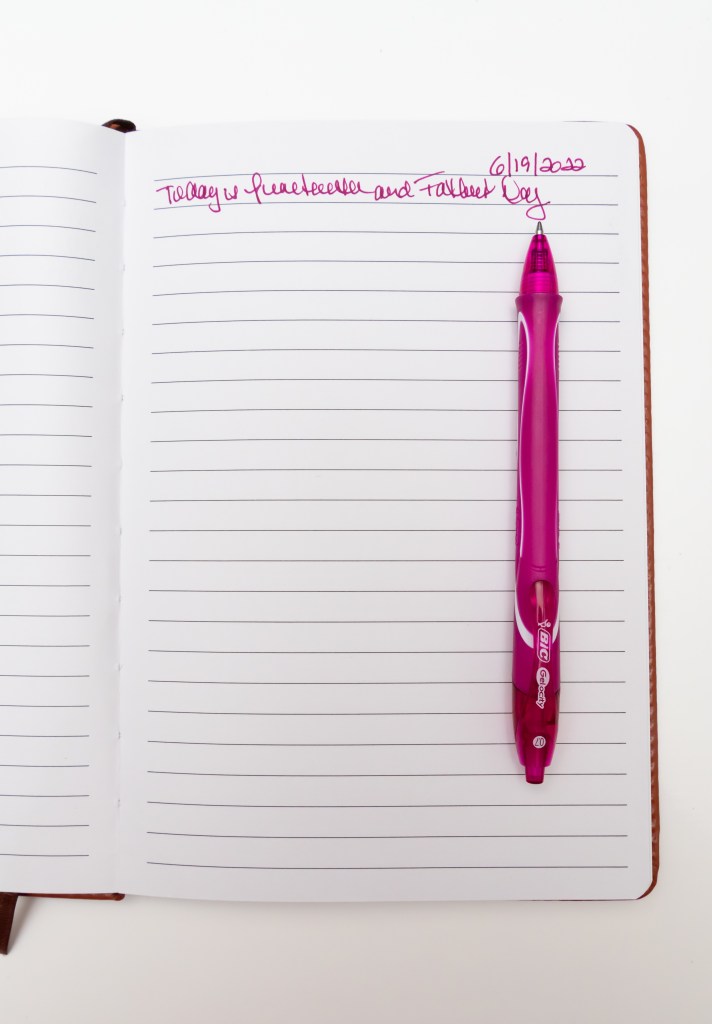 6/19/2022
Today is Juneteenth and Father's Day
BIC
Gelocity